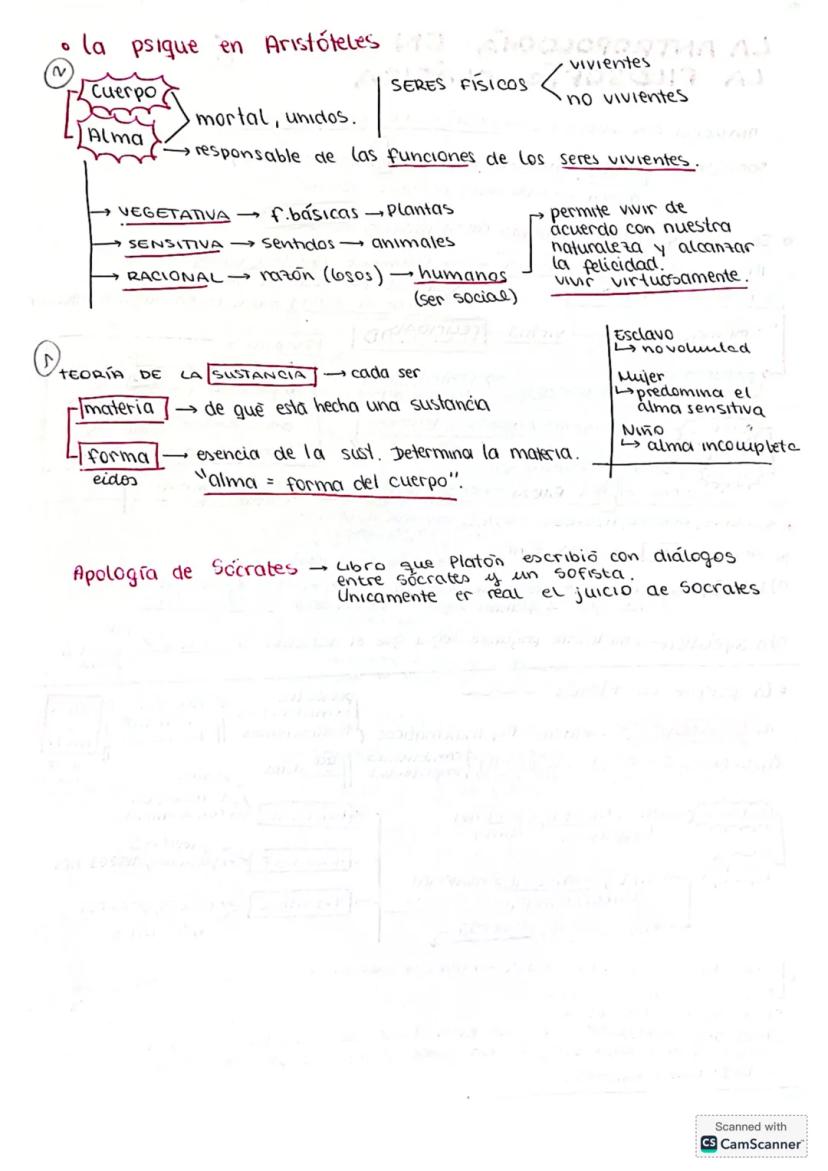 • la psique en Aristóteles
2
Cuerpo
Alma
mortal, unidos.
SERES FÍSICOS
vivientes
no vivientes
→ responsable de las funciones de los seres vivientes.
→ VEGETATIVA → f.básicas → Plantas
→ SENSITIVA → sentidos → animales
→ RACIONAL → razón (logos) → humanos
(ser social)
→ permite vivir de
acuerdo con nuestra
naturaleza y alcanzar
la felicidad.
vivir virtuosamente.
1
TEORÍA DE LA SUSTANCIA → cada ser
materia → de qué está hecha una sustancia
forma → esencia de la sust. Determina la materia.
eidos
"alma = forma del cuerpo".
Esclavo
↳ no voluntad
Mujer
↳ predomina el
alma sensitiva
Niño
↳ alma incompleta
Apología de Sócrates → Libro que Platón escribió con diálogos
entre sócrates y un sofista.
Unicamente er real el juicio de Socrates
Scanned with
CS CamScanner